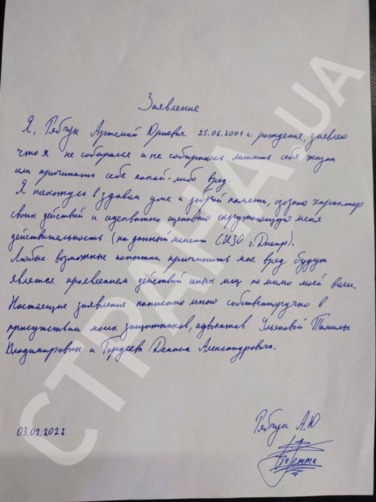 Заявление
Я, Рябчук Артемий Юриевич 25.06.2001 г. рождения, заявляю
что я не собирался и не собираюсь лишать себя жизни
или причинять себе какой-либо вред.
Я нахожусь в здравом уме и доброй памяти, осознаю характер
своих действий и адекватно оцениваю окружающую меня
действительность (на данный момент СИЗО г. Днепр).
Любые возможные попытки причинить мне вред будут
являтся проявлением действий иных лиц помимо моей воли.
Настоящие заявление написано мною собственоручно в
присутствии моих защитников, адвокатов Тамилы
Владимировны и Гордеева Дениса Александровича.
03.02.2022
Рябчук А.Ю
СТРАНА.UA